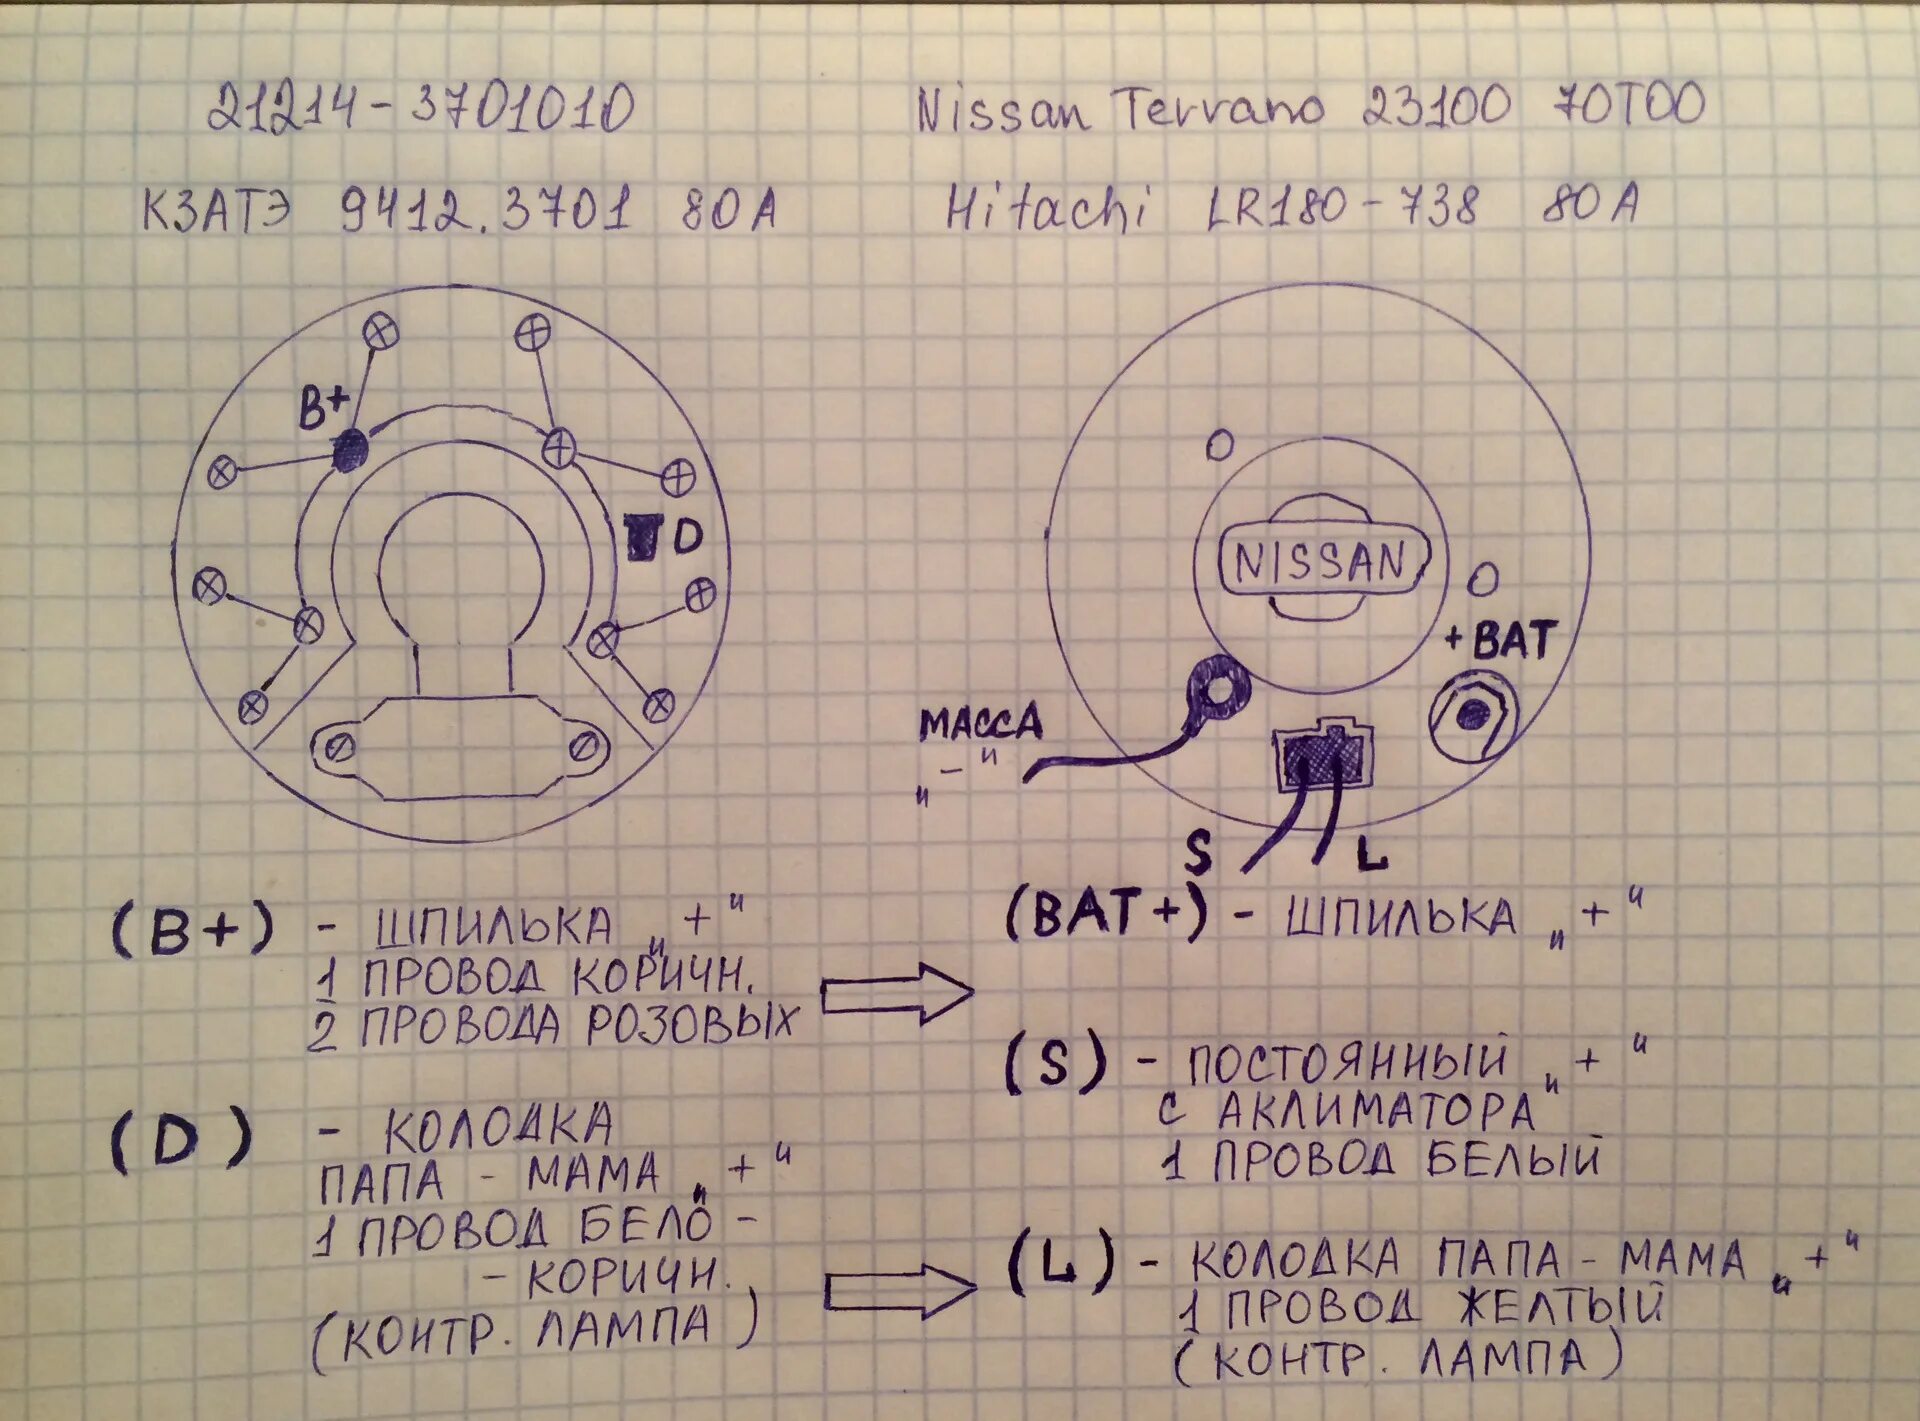 21214-3701010
КЗАТЭ 9412.3701 80А
Nissan Terrano 23100 70T00
Hitachi LR180-738 80A
B+
D
NISSAN
+BAT
МАССА
„-"
S
L
(B+) - ШПИЛЬКА „+"
1 ПРОВОД КОРИЧН.
2 ПРОВОДА РОЗОВЫХ
(D) - КОЛОДКА
ПАПА - МАМА „+"
1 ПРОВОД БЕЛО -
- КОРИЧН.
(КОНТР. ЛАМПА)
(BAT+) - ШПИЛЬКА „+"
(S) - ПОСТОЯННЫЙ „+"
С АКЛИМАТОРА"
1 ПРОВОД БЕЛЫЙ
(L) - КОЛОДКА ПАПА - МАМА „+"
1 ПРОВОД ЖЕЛТЫЙ
(КОНТР. ЛАМПА)